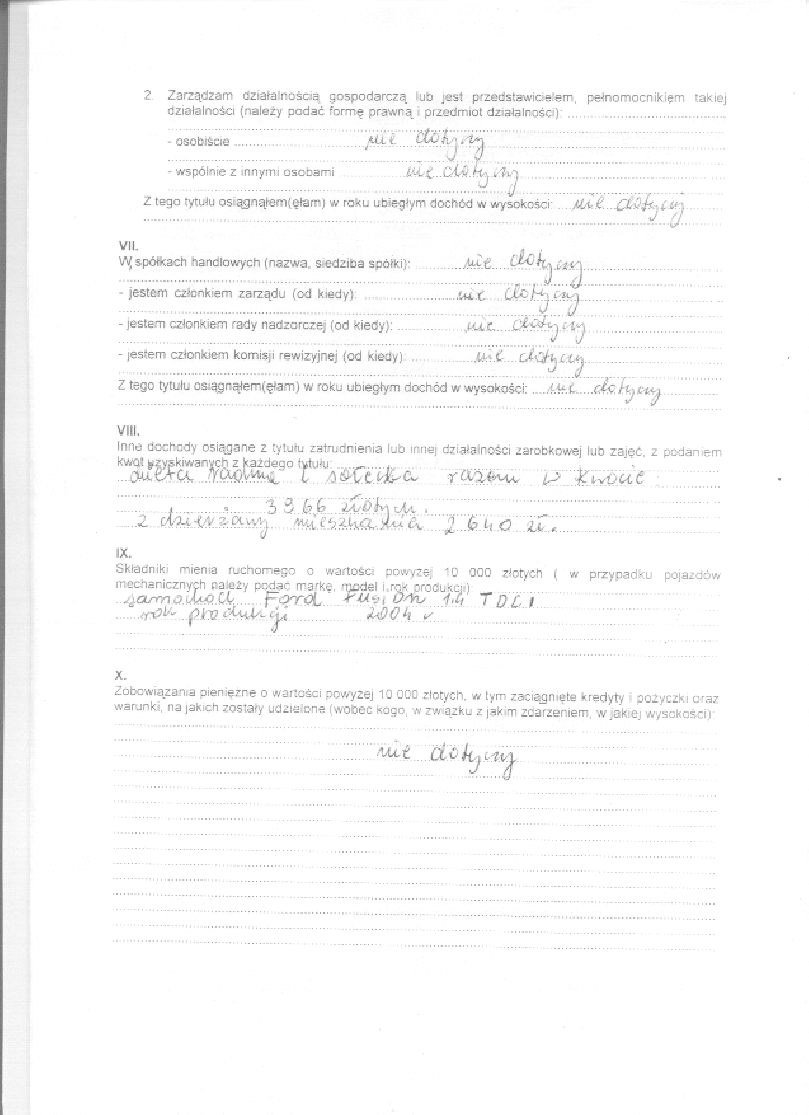 2. Zarządzam działalnością gospodarczą lub jest przedstawicielem, pełnomocnikiem takiej
działalności (należy podać formę prawną i przedmiot działalności):
- osobiście nie dotyczy
- wspólnie z innymi osobami nie dotyczy
Z tego tytułu osiągnąłem(ęłam) w roku ubiegłym dochód w wysokości: nie dotyczy
VII.
W spółkach handlowych (nazwa, siedziba spółki): nie dotyczy
- jestem członkiem zarządu (od kiedy): nie dotyczy
- jestem członkiem rady nadzorczej (od kiedy): nie dotyczy
- jestem członkiem komisji rewizyjnej (od kiedy): nie dotyczy
Z tego tytułu osiągnąłem(ęłam) w roku ubiegłym dochód w wysokości: nie dotyczy
VIII.
Inne dochody osiągane z tytułu zatrudnienia lub innej działalności zarobkowej lub zajęć, z podaniem
kwot uzyskiwanych z każdego tytułu:
dieta radna i sołecka razem w kwocie :
3966 złotych.
z dzierżawy mieszkania 2640 zł.
IX.
Składniki mienia ruchomego o wartości powyżej 10 000 złotych ( w przypadku pojazdów
mechanicznych należy podać markę, model i rok produkcji)
samochód Ford Fusion 1.4 TDCI
rok produkcji 2004 r
X.
Zobowiązania pieniężne o wartości powyżej 10 000 złotych, w tym zaciągnięte kredyty i pożyczki oraz
warunki, na jakich zostały udzielone (wobec kogo, w związku z jakim zdarzeniem, w jakiej wysokości):
nie dotyczy